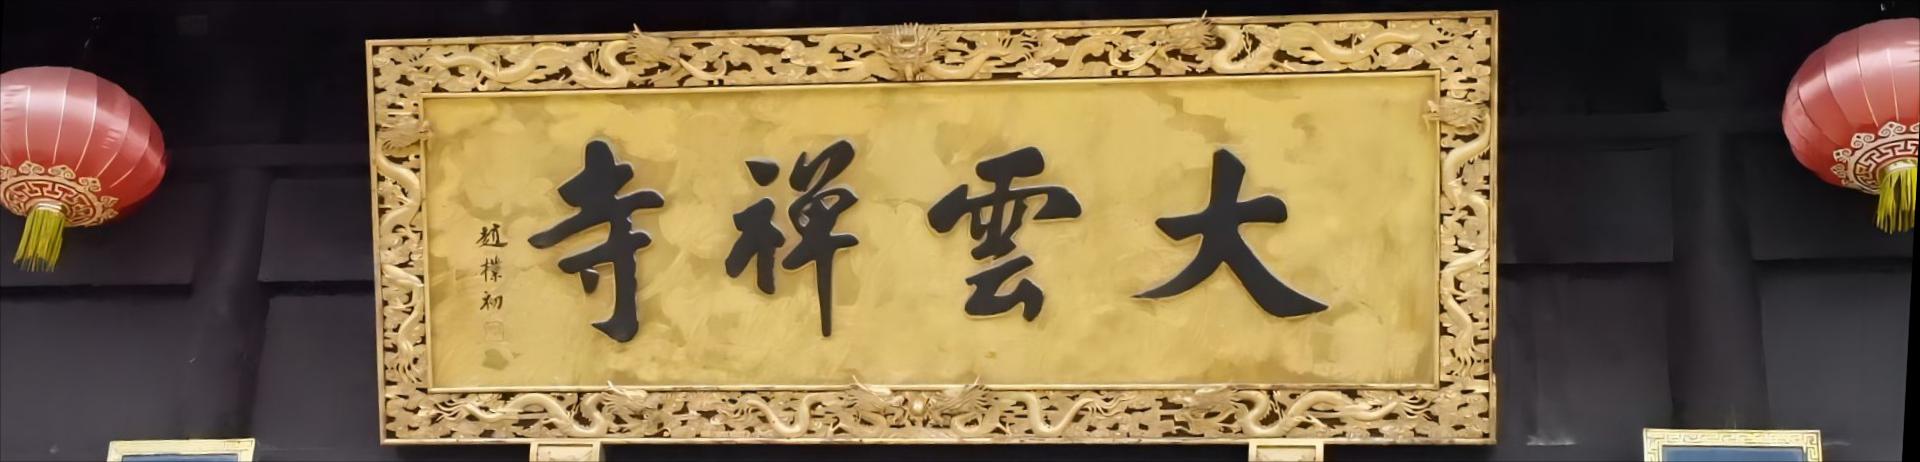 大雲禅寺
趙樸初